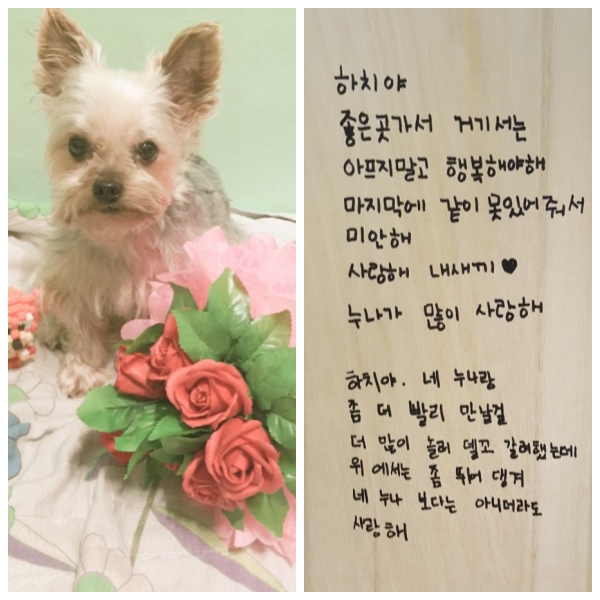 하치야
좋은곳가서 거기서는
아프지말고 행복해야해
마지막에 같이 못있어줘서
미안해
사랑해 내새끼♥
누나가 많이 사랑해
하치야. 네 누나랑
좀 더 빨리 만날걸
더 많이 놀러 델꼬 갈려했는데
위에서는 좀 뛰어 댕겨
네 누나 보다는 아니더라도
사랑해